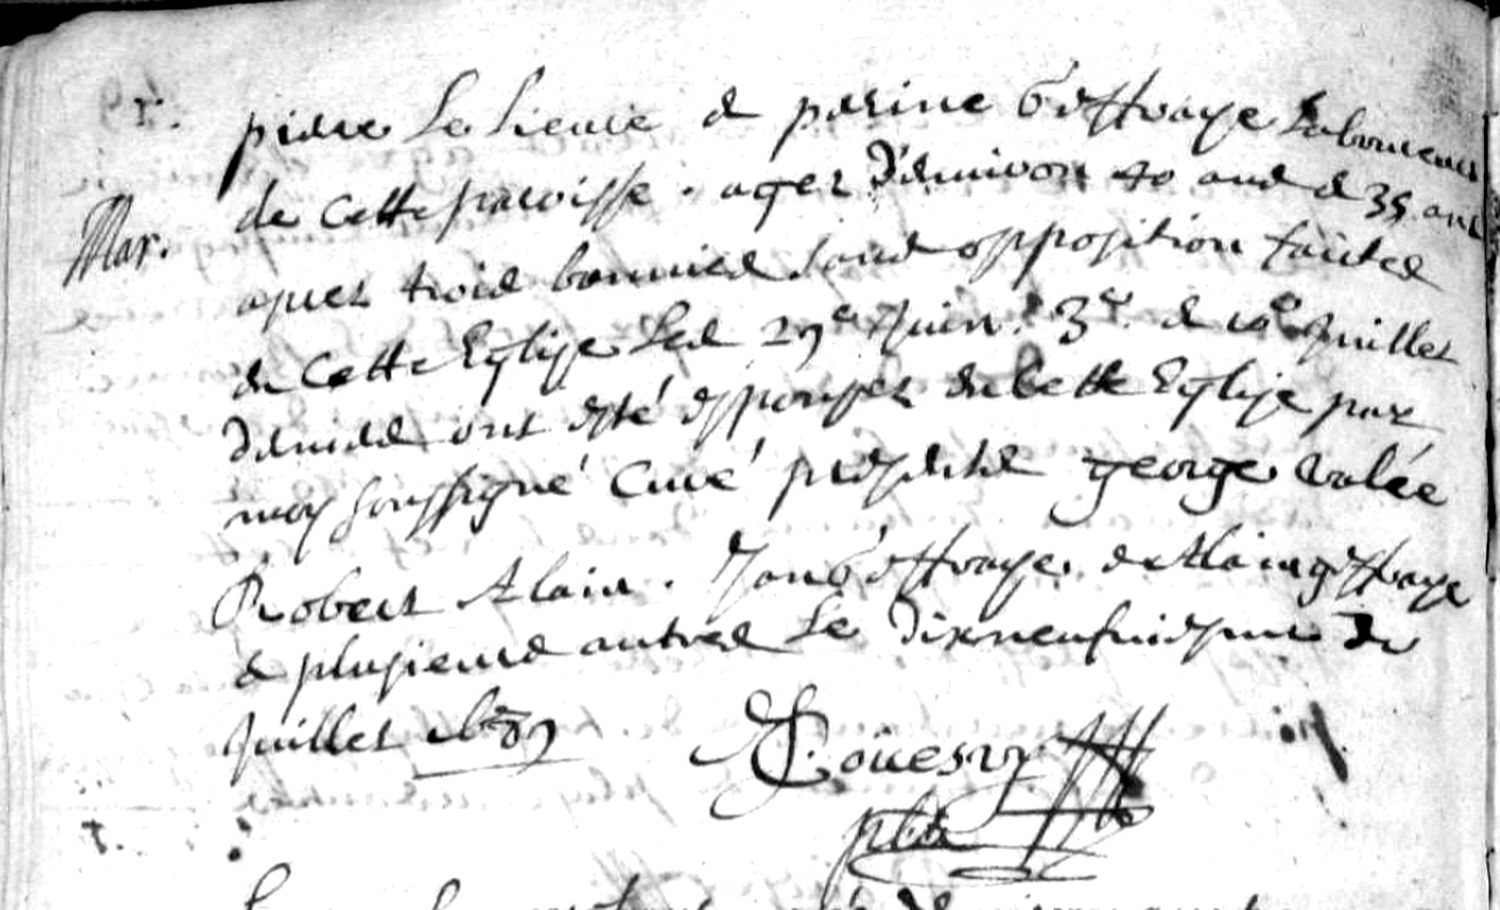 Mar.
pierre Le Sieure & perine Geffraye Laboureurs
de cette paroisse . agez d'environ 40 ans & 35 ans
apres trois bannies sans opposition faites
en cette Eglise Les 29e Juin . 3e. & 10e Juillet
derniers ont esté espousez en cette Eglise par
moy soussigné Curé presents george valée
Robert Alain . Jan Geffraye . & Alain geffraye
& plusieurs autres Le dixneufviesme de
Juillet